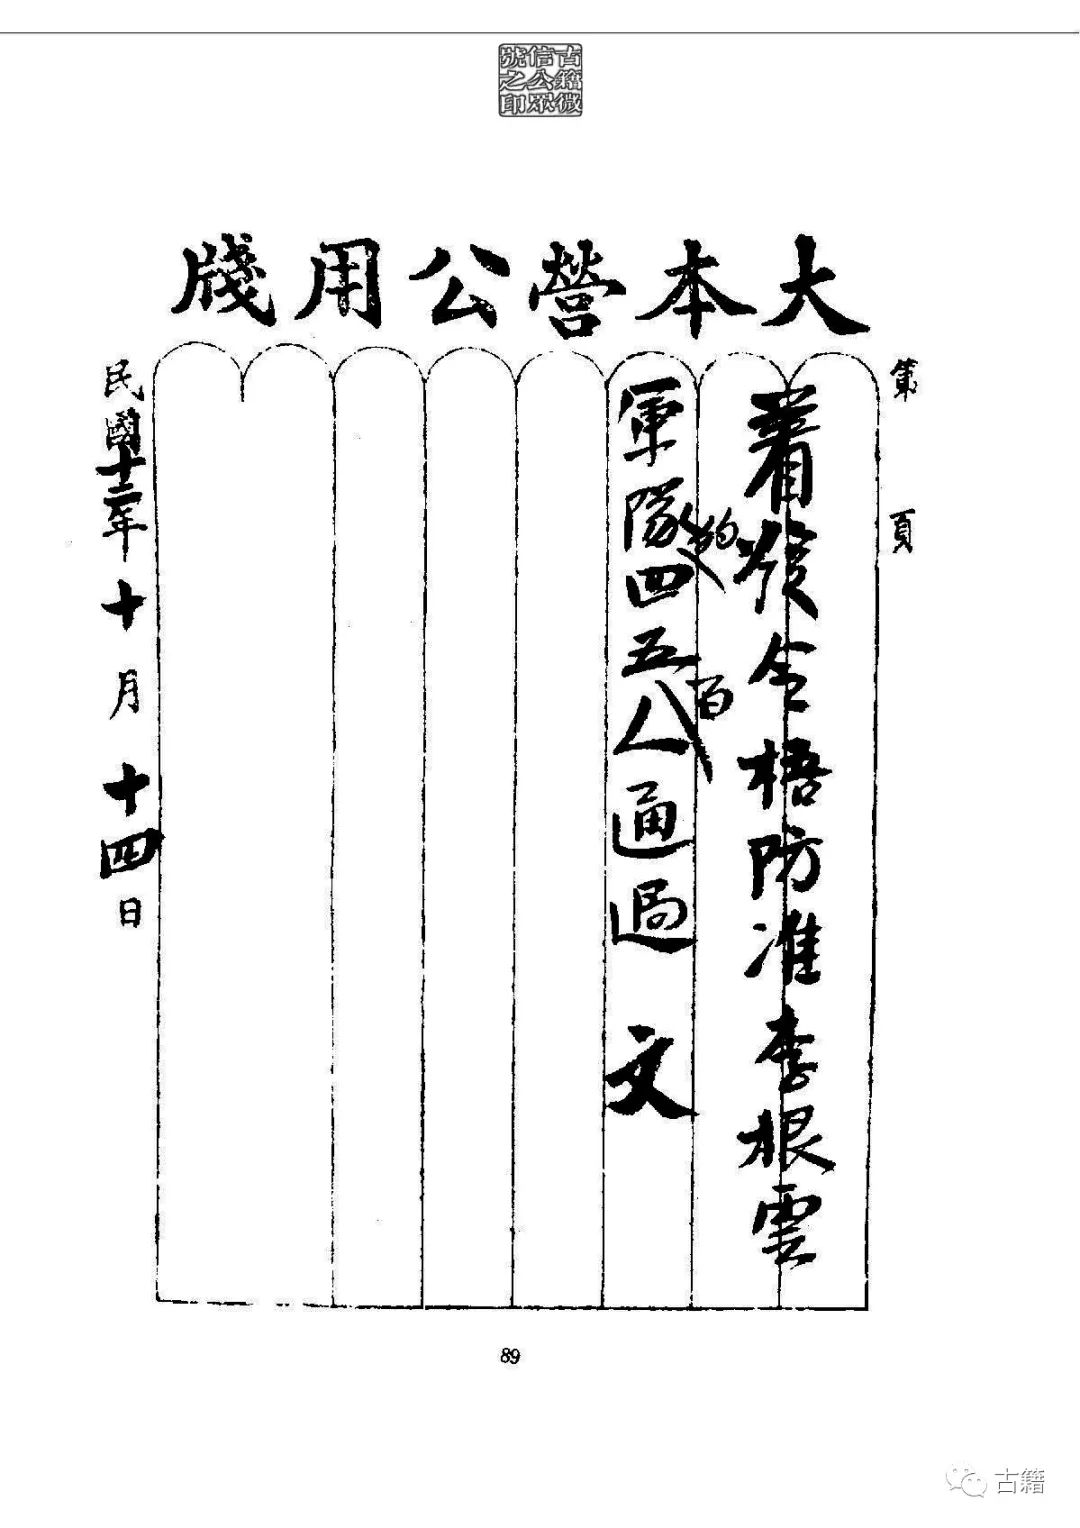 古籍微
信公眾
號之印
大本營公用牋
第 頁
着發令梧防准李根雲
軍隊約四五百人通過 文
民國十二年十月十四日
89
古籍